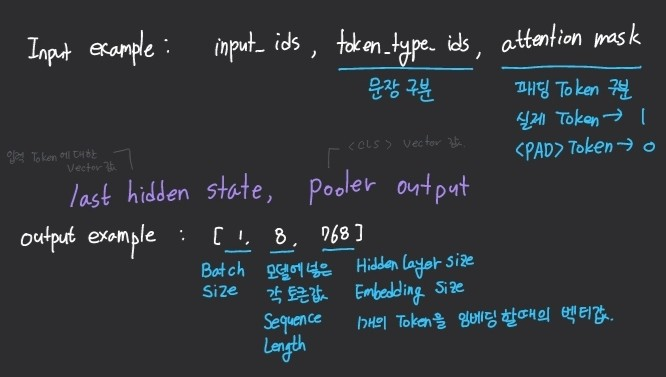 Input example : input_ids, token_type_ids, attention mask
문장 구분
패딩 Token 구분
실제 Token → 1
<PAD> Token → 0
입력 Token에 대한
Vector 값
<CLS> Vector 값.
last hidden state, pooler output
output example : [ 1, 8, 768 ]
Batch Size
모델에 넣은 각 토큰값 Sequence Length
Hidden Layer Size
Embedding Size
1개의 Token을 임베딩 할때의 벡터값.